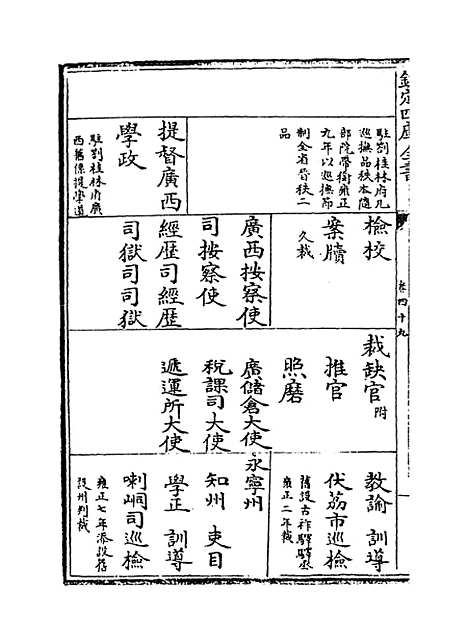 欽定四庫全書
卷四十九
駐劄桂林府凡
巡撫品秩本隨
部院帶銜雍正
九年以巡撫節
制全省晉秩二
品
提督廣西
學政
駐劄桂林府廣
西舊係提學道
檢校
案牘
久裁
廣西按察使
司按察使
經歷司經歷
司獄司司獄
裁缺官附
推官
照磨
廣儲倉大使
稅課司大使
遞運所大使
教諭 訓導
伏荔市巡檢
舊設古祚驛驛丞
雍正二年裁
永寧州
知州 吏目
學正 訓導
喇峒司巡檢
雍正七年添設舊
設州判裁